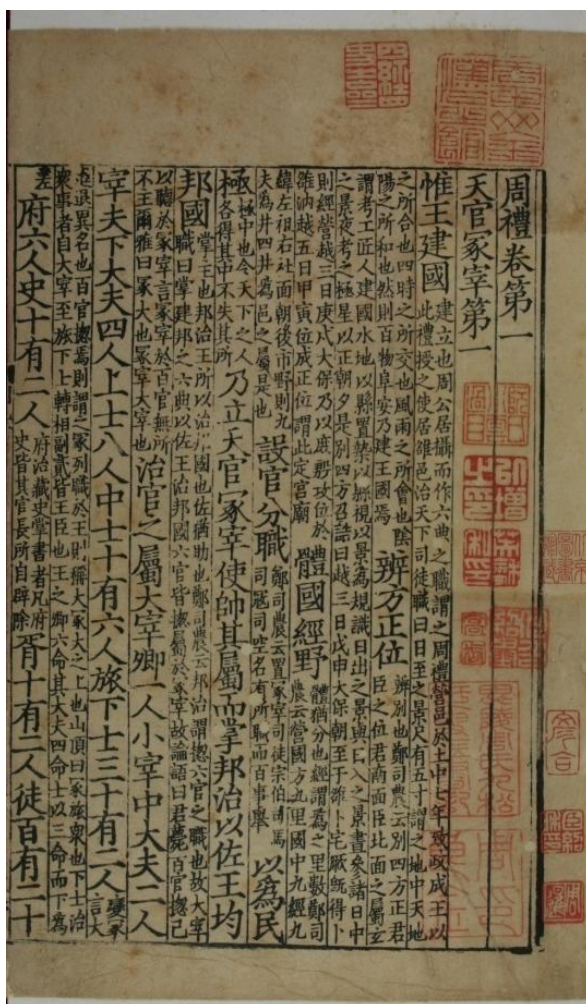 周禮卷第一
天官冢宰第一
惟王建國
建立也周公居攝而作六典之職謂之周禮營邑於土中七年致政成王以
此禮授之使居雒邑治天下司徒職曰日至之景尺有五寸謂之地中天地
之所合也四時之所交也風雨之所會也陰
陽之所和也然則百物阜安乃建王國焉
辨方正位
辨別也鄭司農云別四方正君
臣之位君南面臣北面之屬玄
謂考工匠人建國水地以縣置槷以縣視以景為規識日出之景與日入之景晝參諸日中
之景夜考之極星以正朝夕是別四方召誥曰越三日戊申大保朝至于雒卜宅厥旣得卜
則經營越三日庚戌大保乃以庶殷攻位於
雒汭越五日甲寅位成正位謂此定宮廟
體國經野
體猶分也經謂為之里數鄭司
農云營國方九里國中九經九
緯左祖右社面朝後市野則九
夫為井四井為邑之屬是也
設官分職
鄭司農云置冢宰司徒宗伯司馬
司冦司空各有所職而百事舉
以為民
極
極中也令天下之人
各得其中不失其所
乃立天官冢宰使帥其屬而掌邦治以佐王均
邦國
掌主也邦治王所以治邦國也佐猶助也鄭司農云邦治謂揔六官之職也故大宰
職曰掌建邦之六典以佐王治邦國六官皆揔屬於冢宰故論語曰君薨百官揔己
以聽於冢宰言冢宰於百官無所
不主爾雅曰冢大也冢宰大宰也
治官之屬大宰卿一人小宰中大夫二人
宰夫下大夫四人上士八人中士十有六人旅下士三十有二人
變冢
言大
進退異名也百官揔焉則謂之冢列職於王則稱大冢大之上也山頂曰冢旅衆也下士治
衆事者自大宰至旅下士轉相副貳皆王臣也王之卿六命其大夫四命士以三命而下為
差
府六人史十有二人
府治藏史掌書者凡府
史皆其官長所自辟除
胥十有二人徒百有二十